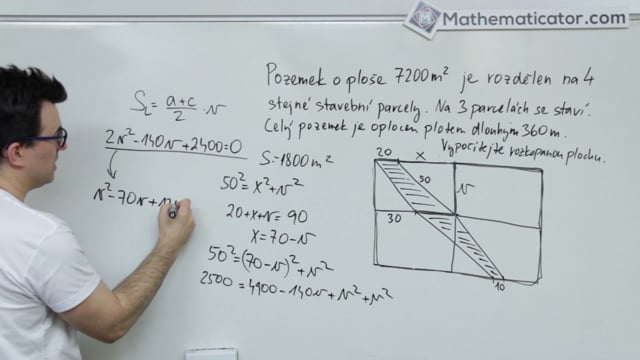 Mathematicator.com
Pozemek o ploše 7200m² je rozdělen na 4
stejné stavební parcely. Na 3 parcelách se staví.
Celý pozemek je oplocen plotem dlouhým 360m.
Vypočítejte rozkopanou plochu.
S_L = (a+c)/2 · v
2v²-140v+2400=0
v²-70v+12
S=1800m²
50²=x²+v²
20+x+v=90
x=70-v
50²=(70-v)²+v²
2500=4900-140v+v²+v²
20
x
50
v
30
10